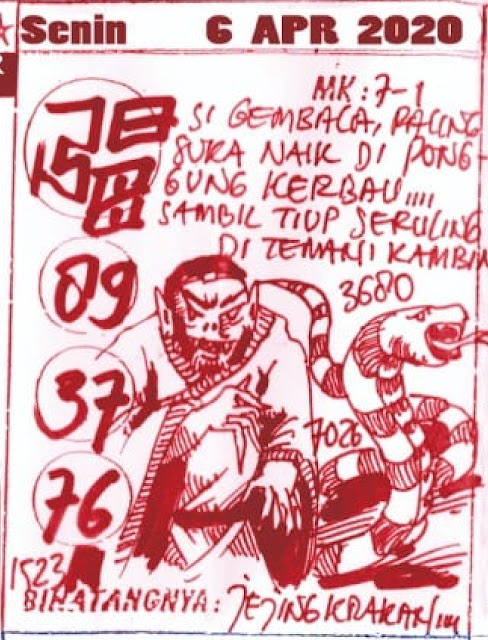 Senin 6 APR 2020
MK : 7-1
SI GEMBALA, PALING
SUKA NAIK DI PONG-
GUNG KERBAU,,,,
SAMBIL TIUP SERULING
DI TEMANI KAMBIN
3680
89
37
7026
76
1523
BINATANGNYA: